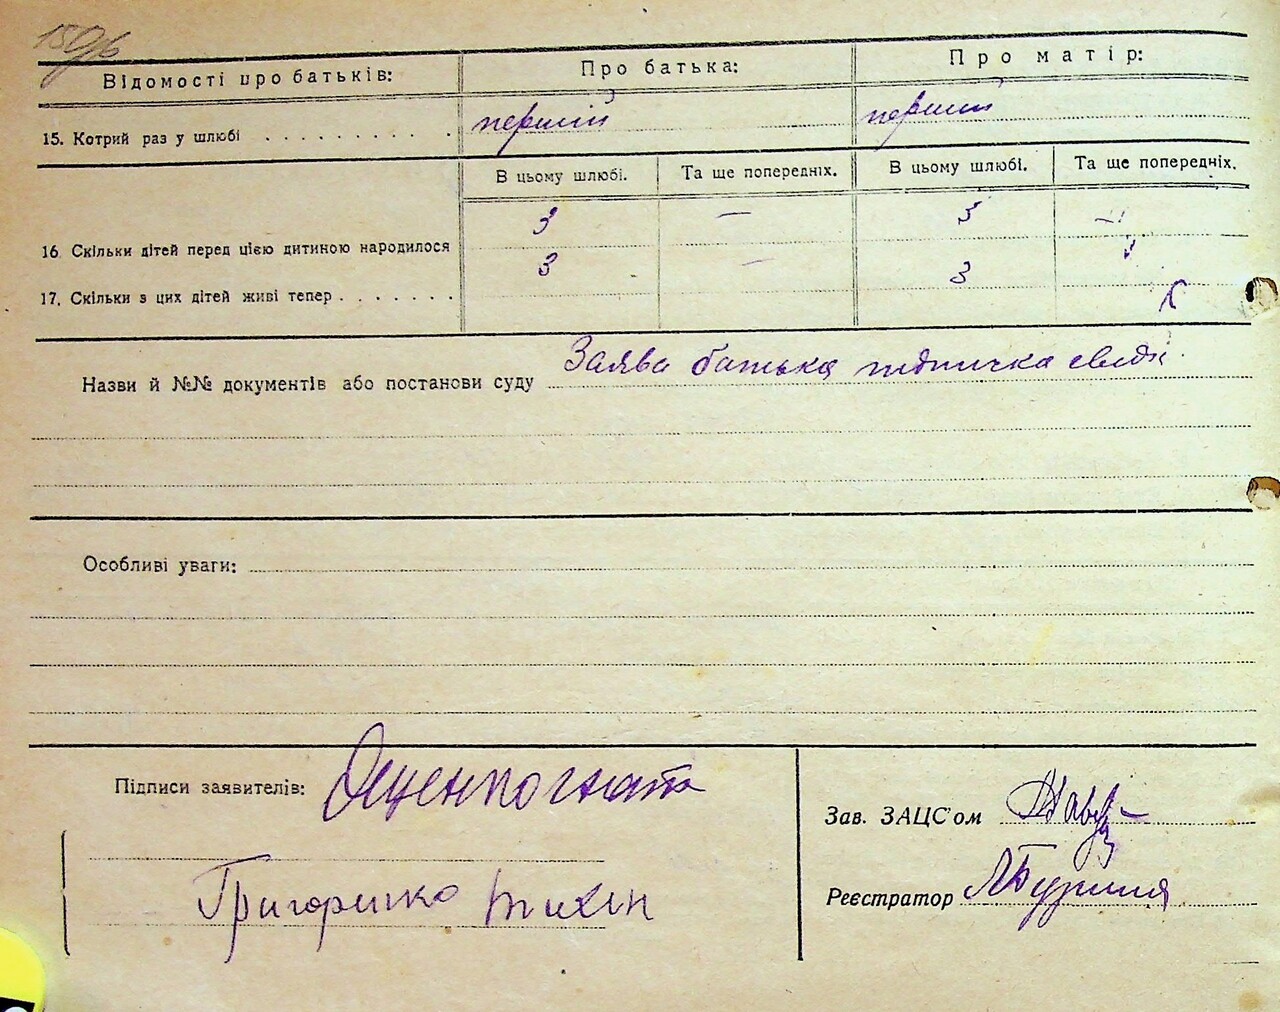 Відомості про батьків: Про батька: Про матір:
15. Котрий раз у шлюбі . . . . . . . . . . перший перший
В цьому шлюбі. Та ще попередніх. В цьому шлюбі. Та ще попередніх.
16. Скільки дітей перед цією дитиною народилося 3 — 3 —
17. Скільки з цих дітей живі тепер . . . . . . . 3 — 3
Назви й №№ документів або постанови суду Заява батька
Особливі уваги:
Підписи заявителів:
Зав. ЗАЦС'ом
Григоренко Тихон
Реєстратор